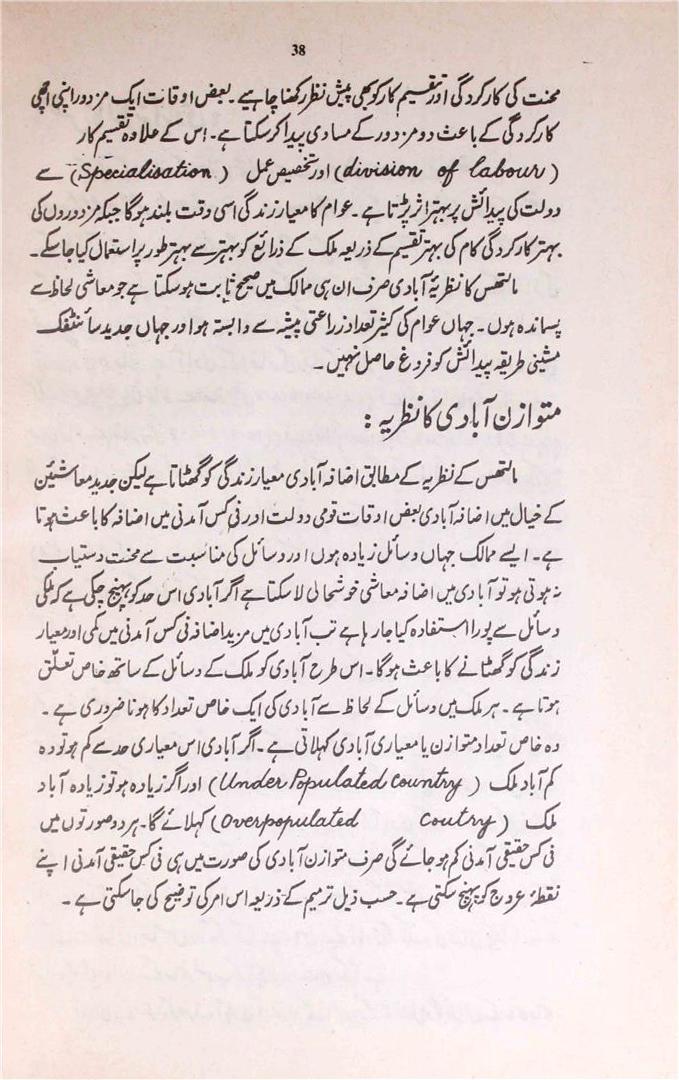 38
محنت کی کارکردگی اور تقسیم کار کو بھی پیش نظر رکھنا چاہیے۔ بعض اوقات ایک مزدور اپنی اچھی
کارکردگی کے باعث دو مزدور کے مساوی پیدا کر سکتا ہے۔ اس کے علاوہ تقسیم کار
(division of labour) اور تخصیص عمل (Specialisation) سے
دولت کی پیدائش پر بہتر اثر پڑتا ہے۔ عوام کا معیار زندگی اسی وقت بلند ہوگا جبکہ مزدوروں کی
بہتر کارکردگی کام کی بہتر تقسیم کے ذریعہ ملک کے ذرائع کو بہتر سے بہتر طور پر استعمال کیا جا سکے۔
مالتھس کا نظریۂ آبادی صرف ان ہی ممالک میں صحیح ثابت ہو سکتا ہے جو معاشی لحاظ سے
پسماندہ ہوں۔ جہاں عوام کی کثیر تعداد زراعتی پیشہ سے وابستہ ہو اور جہاں جدید سائنٹفک
مشینی طریقہ پیدائش کو فروغ حاصل نہیں۔
متوازن آبادی کا نظریہ :
مالتھس کے نظریہ کے مطابق اضافہ آبادی معیار زندگی کو گھٹاتا ہے لیکن جدید معاشئین
کے خیال میں اضافہ آبادی بعض اوقات قومی دولت اور فی کس آمدنی میں اضافہ کا باعث ہوتا
ہے۔ ایسے ممالک جہاں وسائل زیادہ ہوں اور وسائل کی مناسبت سے محنت دستیاب
نہ ہوتی ہو تو آبادی میں اضافہ معاشی خوشحالی لا سکتا ہے اگر آبادی اس حد کو پہنچ چکی ہے کہ ملکی
وسائل سے پورا استفادہ کیا جا رہا ہے تب آبادی میں مزید اضافہ فی کس آمدنی میں کمی اور معیار
زندگی کو گھٹانے کا باعث ہوگا۔ اس طرح آبادی کو ملک کے وسائل کے ساتھ خاص تعلّق
ہوتا ہے۔ ہر ملک میں وسائل کے لحاظ سے آبادی کی ایک خاص تعداد کا ہونا ضروری ہے۔
وہ خاص تعداد متوازن یا معیاری آبادی کہلاتی ہے۔ اگر آبادی اس معیاری حد سے کم ہو تو وہ
کم آباد ملک (Under Populated Country) اور اگر زیادہ ہو تو زیادہ آباد
ملک (Overpopulated Coutry) کہلائے گا۔ ہر دو صورتوں میں
فی کس حقیقی آمدنی کم ہو جائے گی صرف متوازن آبادی کی صورت میں ہی فی کس حقیقی آمدنی اپنے
نقطۂ عروج کو پہنچ سکتی ہے۔ حسب ذیل ترمیم کے ذریعہ اس امر کی توضیح کی جا سکتی ہے۔